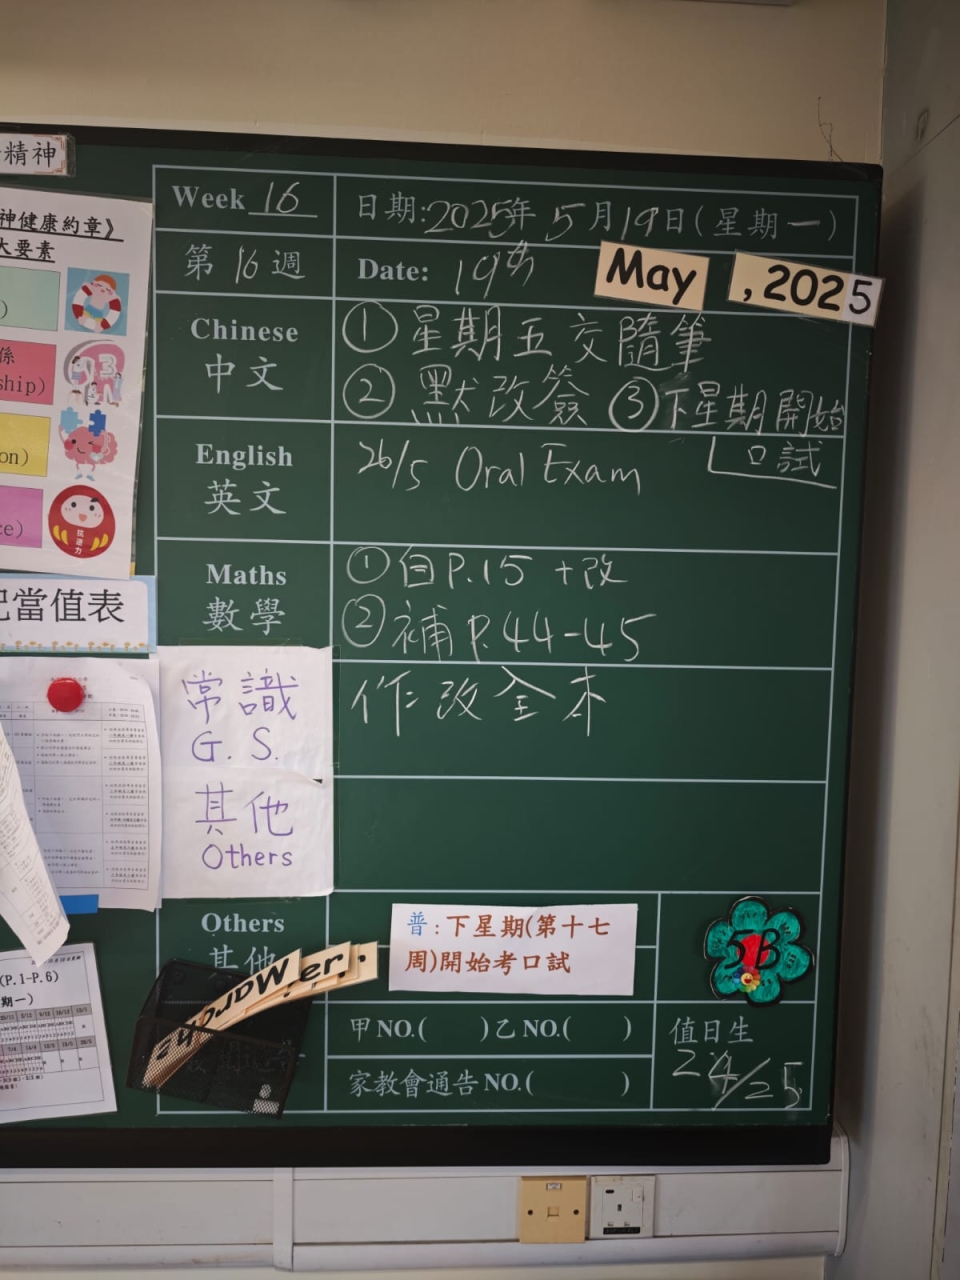 精神
神健康約章》
大要素
係
ship)
on)
抗逆力
ce)
記當值表
Week 16
日期:2025年5月19日(星期一)
第16週
Date: 19th May, 2025
Chinese
中文
①星期五交隨筆
②默改簽 ③下星期開始
口試
English
英文
26/5 Oral Exam
Maths
數學
①自P.15 +改
②補P.44-45
常識
G.S.
作改全本
其他
Others
Others
其他
普:下星期(第十七
周)開始考口試
5B
甲NO.( )乙NO.( )
家教會通告NO.( )
值日生
24/25
(P.1-P.6)
期一)